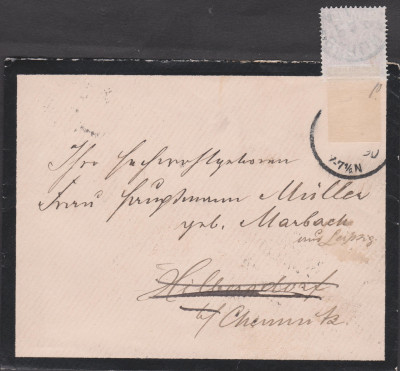 Ihre Hochwohlgeboren
Frau Hauptmann Müller
geb. Marbach
aus Leipzig
Hilbersdorf
b/ Chemnitz.
7-7½N